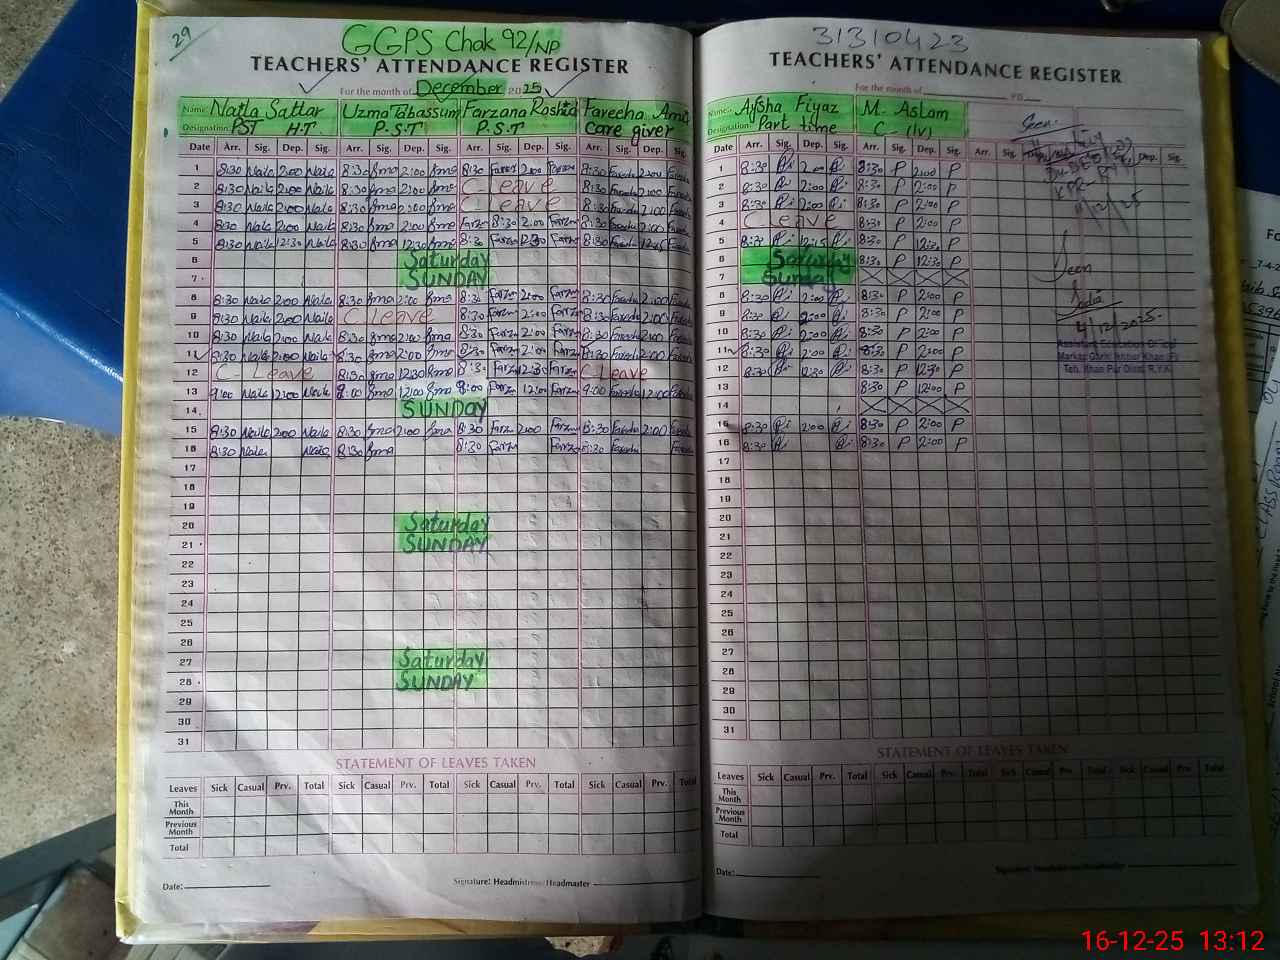 29
GGPS Chak 92/NP
TEACHERS' ATTENDANCE REGISTER
For the month of December 2025
Name: Naila Sattar Uzma Tabassum Farzana Rashid Fareeha
Designation: PST H.T. P.S.T P.S.T care giver
Date Arr. Sig. Dep. Sig. Arr. Sig. Dep. Sig. Arr. Sig. Dep. Sig. Arr. Sig. Dep. Sig.
1 8:30 Naila 2:00 Naila 8:30 2:00 8:30 Farzn 2:00 Farzn 8:30 Fareeha 2:00 Fareeha
2 8:30 Naila 2:00 Naila 8:30 2:00 C-Leave 8:30 Fareeha 2:00 Fareeha
3 8:30 Naila 2:00 Naila 8:30 2:00 C-Leave 8:30 Fareeha 2:00 Fareeha
4 8:30 Naila 2:00 Naila 8:30 2:00 Farzn 8:30 2:00 Farzn 8:30 Fareeha 2:00 Fareeha
5 8:30 Naila 12:30 Naila 8:30 12:30 8:30 Farzn 12:30 Farzn 8:30 Fareeha Fareeha
6 Saturday
7 SUNDAY
8 8:30 Naila 2:00 Naila 8:30 2:00 8:30 Farzn 2:00 Farzn 8:30 Fareeha 2:00 Fareeha
9 8:30 Naila 2:00 Naila C Leave 8:30 Farzn 2:00 Farzn 8:30 Fareeha 2:00 Fareeha
10 8:30 Naila 2:00 Naila 8:30 2:00 8:30 Farzn 2:00 Farzn 8:30 Fareeha 2:00 Fareeha
11 8:30 Naila 2:00 Naila 8:30 2:00 8:30 Farzn 2:00 Farzn 8:30 Fareeha 2:00 Fareeha
12 C-Leave 8:30 12:30 8:30 Farzn 12:30 Farzn C Leave
13 9:00 Naila 12:00 Naila 9:00 12:00 9:00 Farzn 12:00 Farzn 9:00 Fareeha 12:00 Fareeha
14 SUNDAY
15 8:30 Naila 2:00 Naila 8:30 2:00 8:30 Farzn 2:00 Farzn 8:30 Fareeha 2:00 Fareeha
16 8:30 Naila Naila 8:30 8:30 Farzn Farzn 8:30 Fareeha Fareeha
17
18
19
20 Saturday
21 SUNDAY
22
23
24
25
26
27 Saturday
28 SUNDAY
29
30
31
STATEMENT OF LEAVES TAKEN
Leaves Sick Casual Prv. Total Sick Casual Prv. Total Sick Casual Prv. Total Sick Casual Prv. Total
This Month
Previous Month
Total
Date: Signature: Headmistress/Headmaster
31310423
TEACHERS' ATTENDANCE REGISTER
For the month of 20
Name: Aysha Fiyaz M. Aslam
Designation: Part time C-(iv)
Date Arr. Sig. Dep. Sig. Arr. Sig. Dep. Sig. Arr. Sig. Dep. Sig.
1 8:30 2:00 8:30 P 2:00 P
2 8:30 2:00 8:30 P 2:00 P
3 8:30 2:00 8:30 P 2:00 P
4 C Leave 8:30 P 2:00 P
5 8:30 12:15 8:30 P 12:30 P
6 Saturday 8:30 P 12:30 P
7 Sunday
8 8:30 2:00 8:30 P 2:00 P
9 8:30 2:00 8:30 P 2:00 P
10 8:30 2:00 8:30 P 2:00 P
11 8:30 2:00 8:30 P 2:00 P
12 8:30 12:30 8:30 P 12:30 P
13 8:30 P 12:00 P
14
15 8:30 2:00 8:30 P 2:00 P
16 8:30 8:30 P 2:00 P
17
18
19
20
21
22
23
24
25
26
27
28
29
30
31
Seen
11/12/25
Seen
4/12/2025
Assistant Education Officer
Teh. Khan Pur Distt. R.Y.K
STATEMENT OF LEAVES TAKEN
Leaves Sick Casual Prv. Total Sick Casual Prv. Total Sick Casual Prv. Total Sick Casual Prv. Total
This Month
Previous Month
Total
Date: Signature: Headmistress/Headmaster
16-12-25 13:12